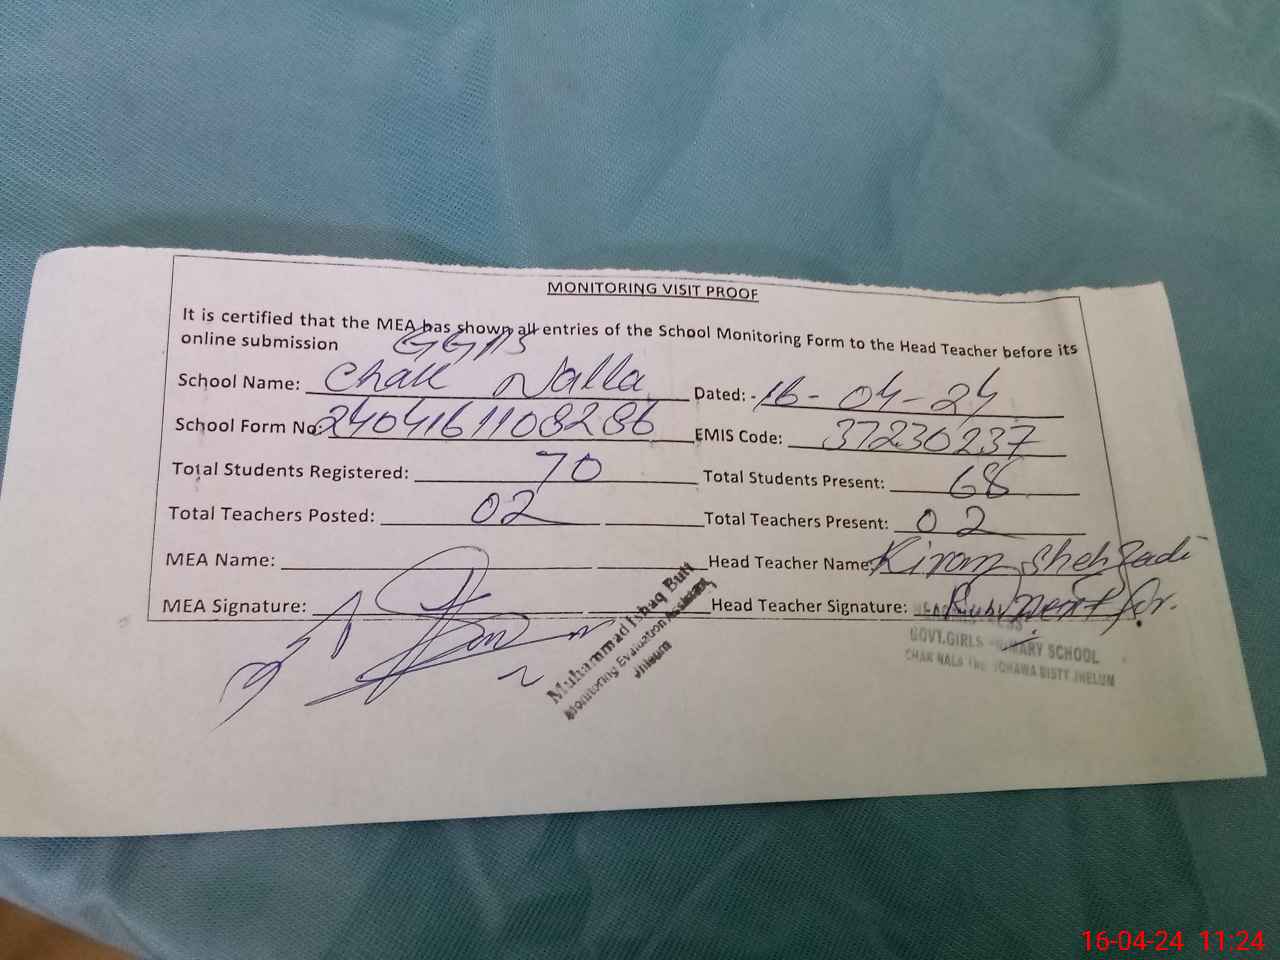 MONITORING VISIT PROOF
It is certified that the MEA has shown all entries of the School Monitoring Form to the Head Teacher before its
online submission
GGPS
School Name: Chak Nalla Dated: 16-04-24
School Form No: 2404161108286 EMIS Code: 37230237
Total Students Registered: 70 Total Students Present: 68
Total Teachers Posted: 02 Total Teachers Present: 02
MEA Name: Head Teacher Name: Kiran Shehzadi
MEA Signature: Head Teacher Signature:
Muhammad Ishaq Butt
Monitoring Evaluation Assistant
Jhelum
GOVT.GIRLS PRIMARY SCHOOL
CHAK NALA DISTT JHELUM
16-04-24 11:24